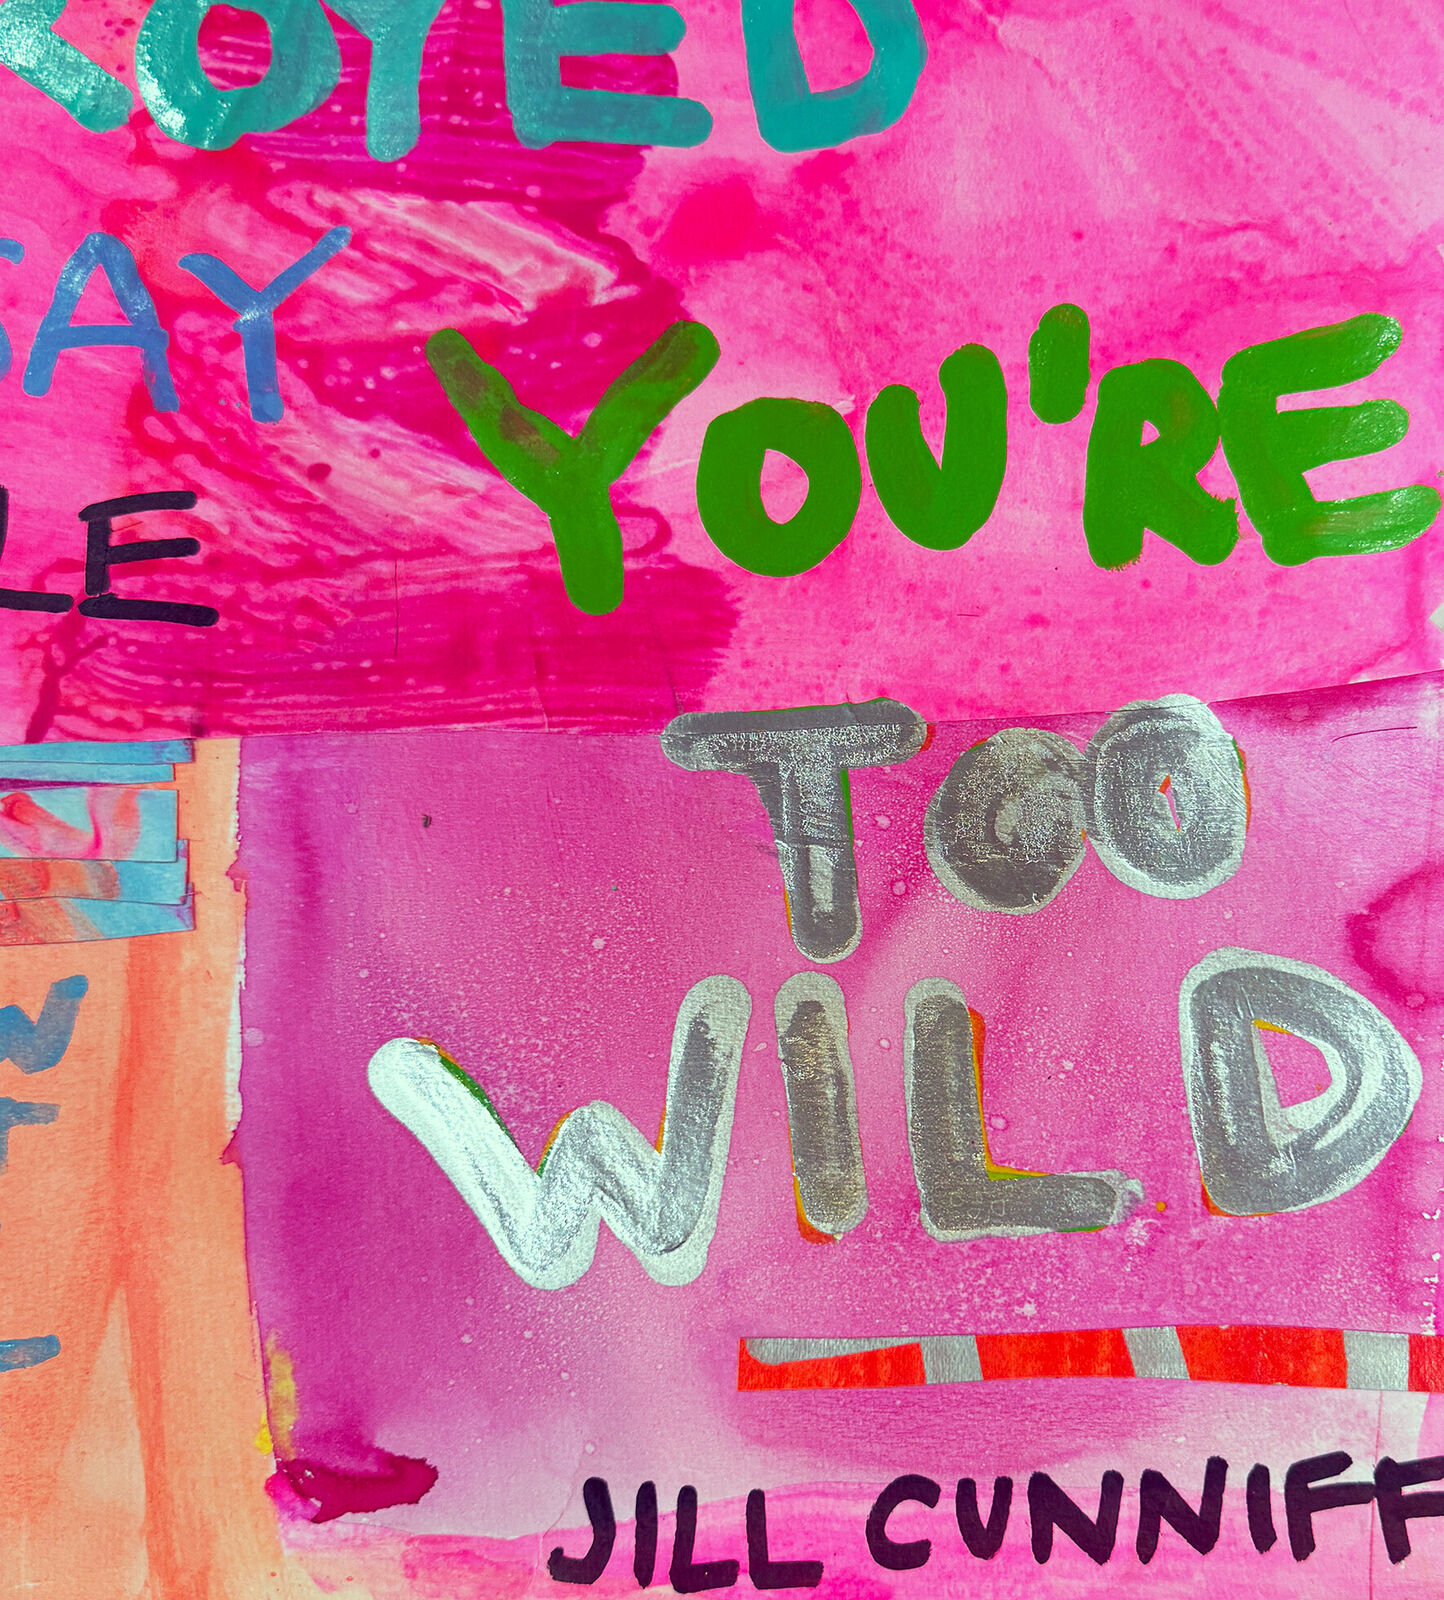 ROYED
SAY
YOU'RE
LE
TOO
WILD
JILL CUNNIFF